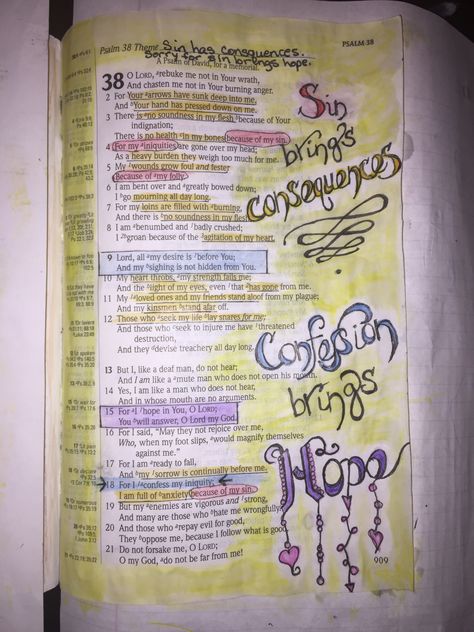 Psalm 38 Theme Sin has consquences.
Sorry for sin brings hope.
PSALM 38
A Psalm of David, for a memorial.
38 O LORD, rebuke me not in Your wrath,
And chasten me not in Your burning anger.
2 For Your arrows have sunk deep into me,
And Your hand has pressed down on me.
3 There is no soundness in my flesh because of Your
indignation;
There is no health in my bones because of my sin.
4 For my iniquities are gone over my head;
As a heavy burden they weigh too much for me.
5 My wounds grow foul and fester
Because of my folly.
6 I am bent over and greatly bowed down;
I go mourning all day long.
7 For my loins are filled with burning,
And there is no soundness in my flesh
8 I am benumbed and badly crushed;
I groan because of the agitation of my heart.
9 Lord, all my desire is before You;
And my sighing is not hidden from You.
10 My heart throbs, my strength fails me;
And the light of my eyes, even that has gone from me.
11 My loved ones and my friends stand aloof from my plague;
And my kinsmen stand afar off.
12 Those who seek my life lay snares for me;
And those who seek to injure me have threatened
destruction,
And they devise treachery all day long.
13 But I, like a deaf man, do not hear;
And I am like a mute man who does not open his mouth.
14 Yes, I am like a man who does not hear,
And in whose mouth are no arguments.
15 For I hope in You, O LORD;
You will answer, O Lord my God.
16 For I said, "May they not rejoice over me,
Who, when my foot slips, would magnify themselves
against me."
17 For I am ready to fall,
And my sorrow is continually before me.
18 For I confess my iniquity;
I am full of anxiety because of my sin.
19 But my enemies are vigorous and strong,
And many are those who hate me wrongfully.
20 And those who repay evil for good,
They oppose me, because I follow what is good.
21 Do not forsake me, O LORD;
O my God, do not be far from me!
Sin
brings
consequences
Confession
brings
Hope
909